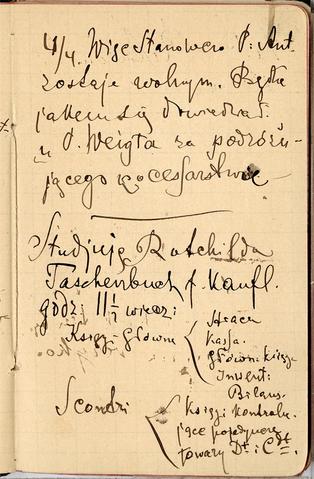 4/4. Więc Stanowczo P. Ant-
zostaje wolnym. Będę
jakem się dowiedział
u P. Weigta za podróżu-
jącego
Studjuję Rotchilda
Taschenbuch f. Kaufl.
godz. 11 1/2 wiecz:
Księgi Główne
Kassa.
główn. księga
Inwent:
Bilans.
Scondri
Księgi kontrolu-
jące pojedyncze
towary Dt i Cdt.